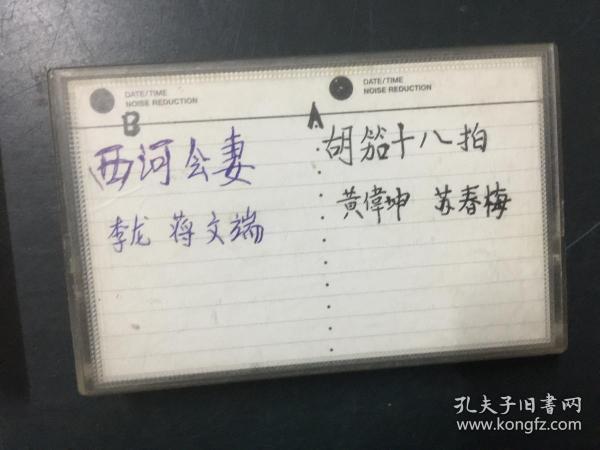 DATE/TIME
NOISE REDUCTION
B
西河会妻
李龙 蒋文端
DATE/TIME
NOISE REDUCTION
A
胡笳十八拍
黄偉坤 苏春梅
孔夫子旧书网
www.kongfz.com